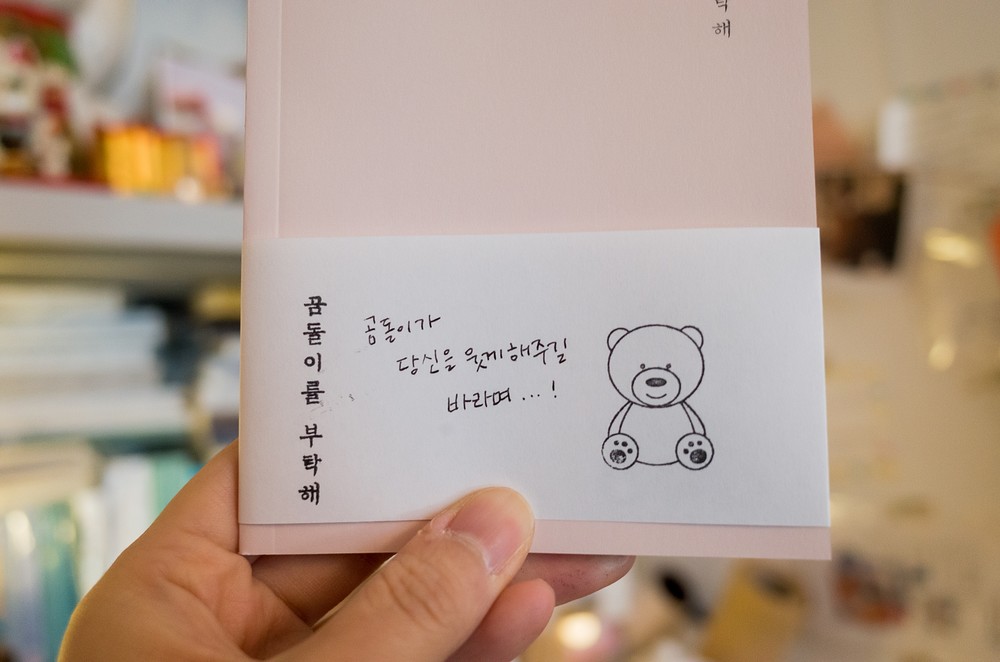 해
곰돌이를 부탁해
곰돌이가
당신을 웃게해주길
바라며 ... !